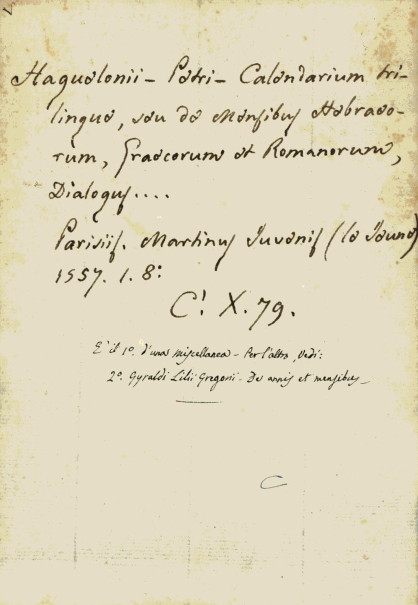 Haguelonii - Petri - Calendarium tri-
lingue, seu de Mensibus Hebraeo-
rum, Graecorum et Romanorum,
Dialogus....
Parisiis. Martinus Juvenis (le Jeune)
1557. 1. 8:
C! X. 79.
E' il 1º. d'una miscellanea - Per l'altra, Vedi:
2º. Gyraldi Lilii Gregorii - De annis et mensibus_
C